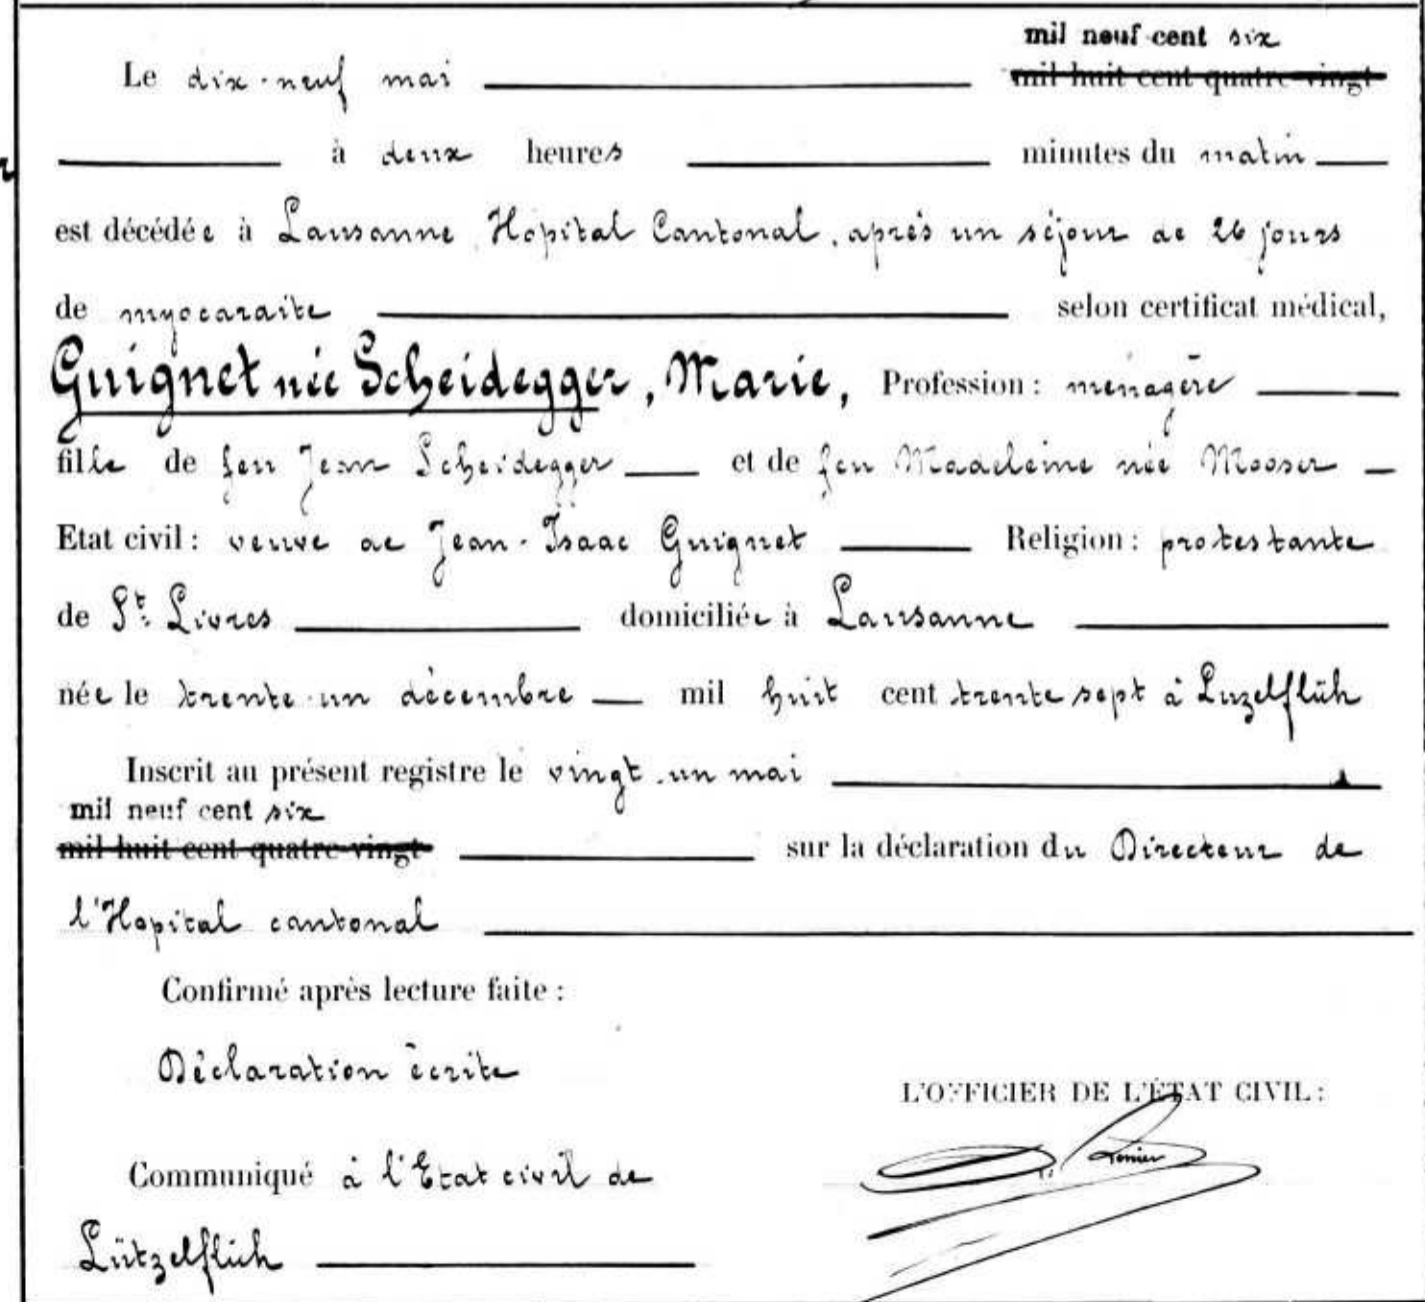 mil neuf cent six
Le dix-neuf mai mil huit cent quatre-vingt
à deux heures minutes du matin
est décédée à Lausanne, Hôpital Cantonal, après un séjour de 26 jours
de myocardite selon certificat médical,
Guignet née Scheidegger, Marie, Profession : ménagère
fille de feu Jean Scheidegger et de feu Madeleine née Mooser
Etat civil : veuve de Jean-Isaac Guignet Religion : protestante
de St. Livres domiciliée à Lausanne
née le trente-un décembre mil huit cent trente sept à Luzelflüh
Inscrit au présent registre le vingt-un mai
mil neuf cent six
mil huit cent quatre-vingt sur la déclaration du Directeur de
l'Hopital cantonal
Confirmé après lecture faite :
Déclaration écrite
L'OFFICIER DE L'ÉTAT CIVIL :
Communiqué à l'Etat civil de
Lützelflüh